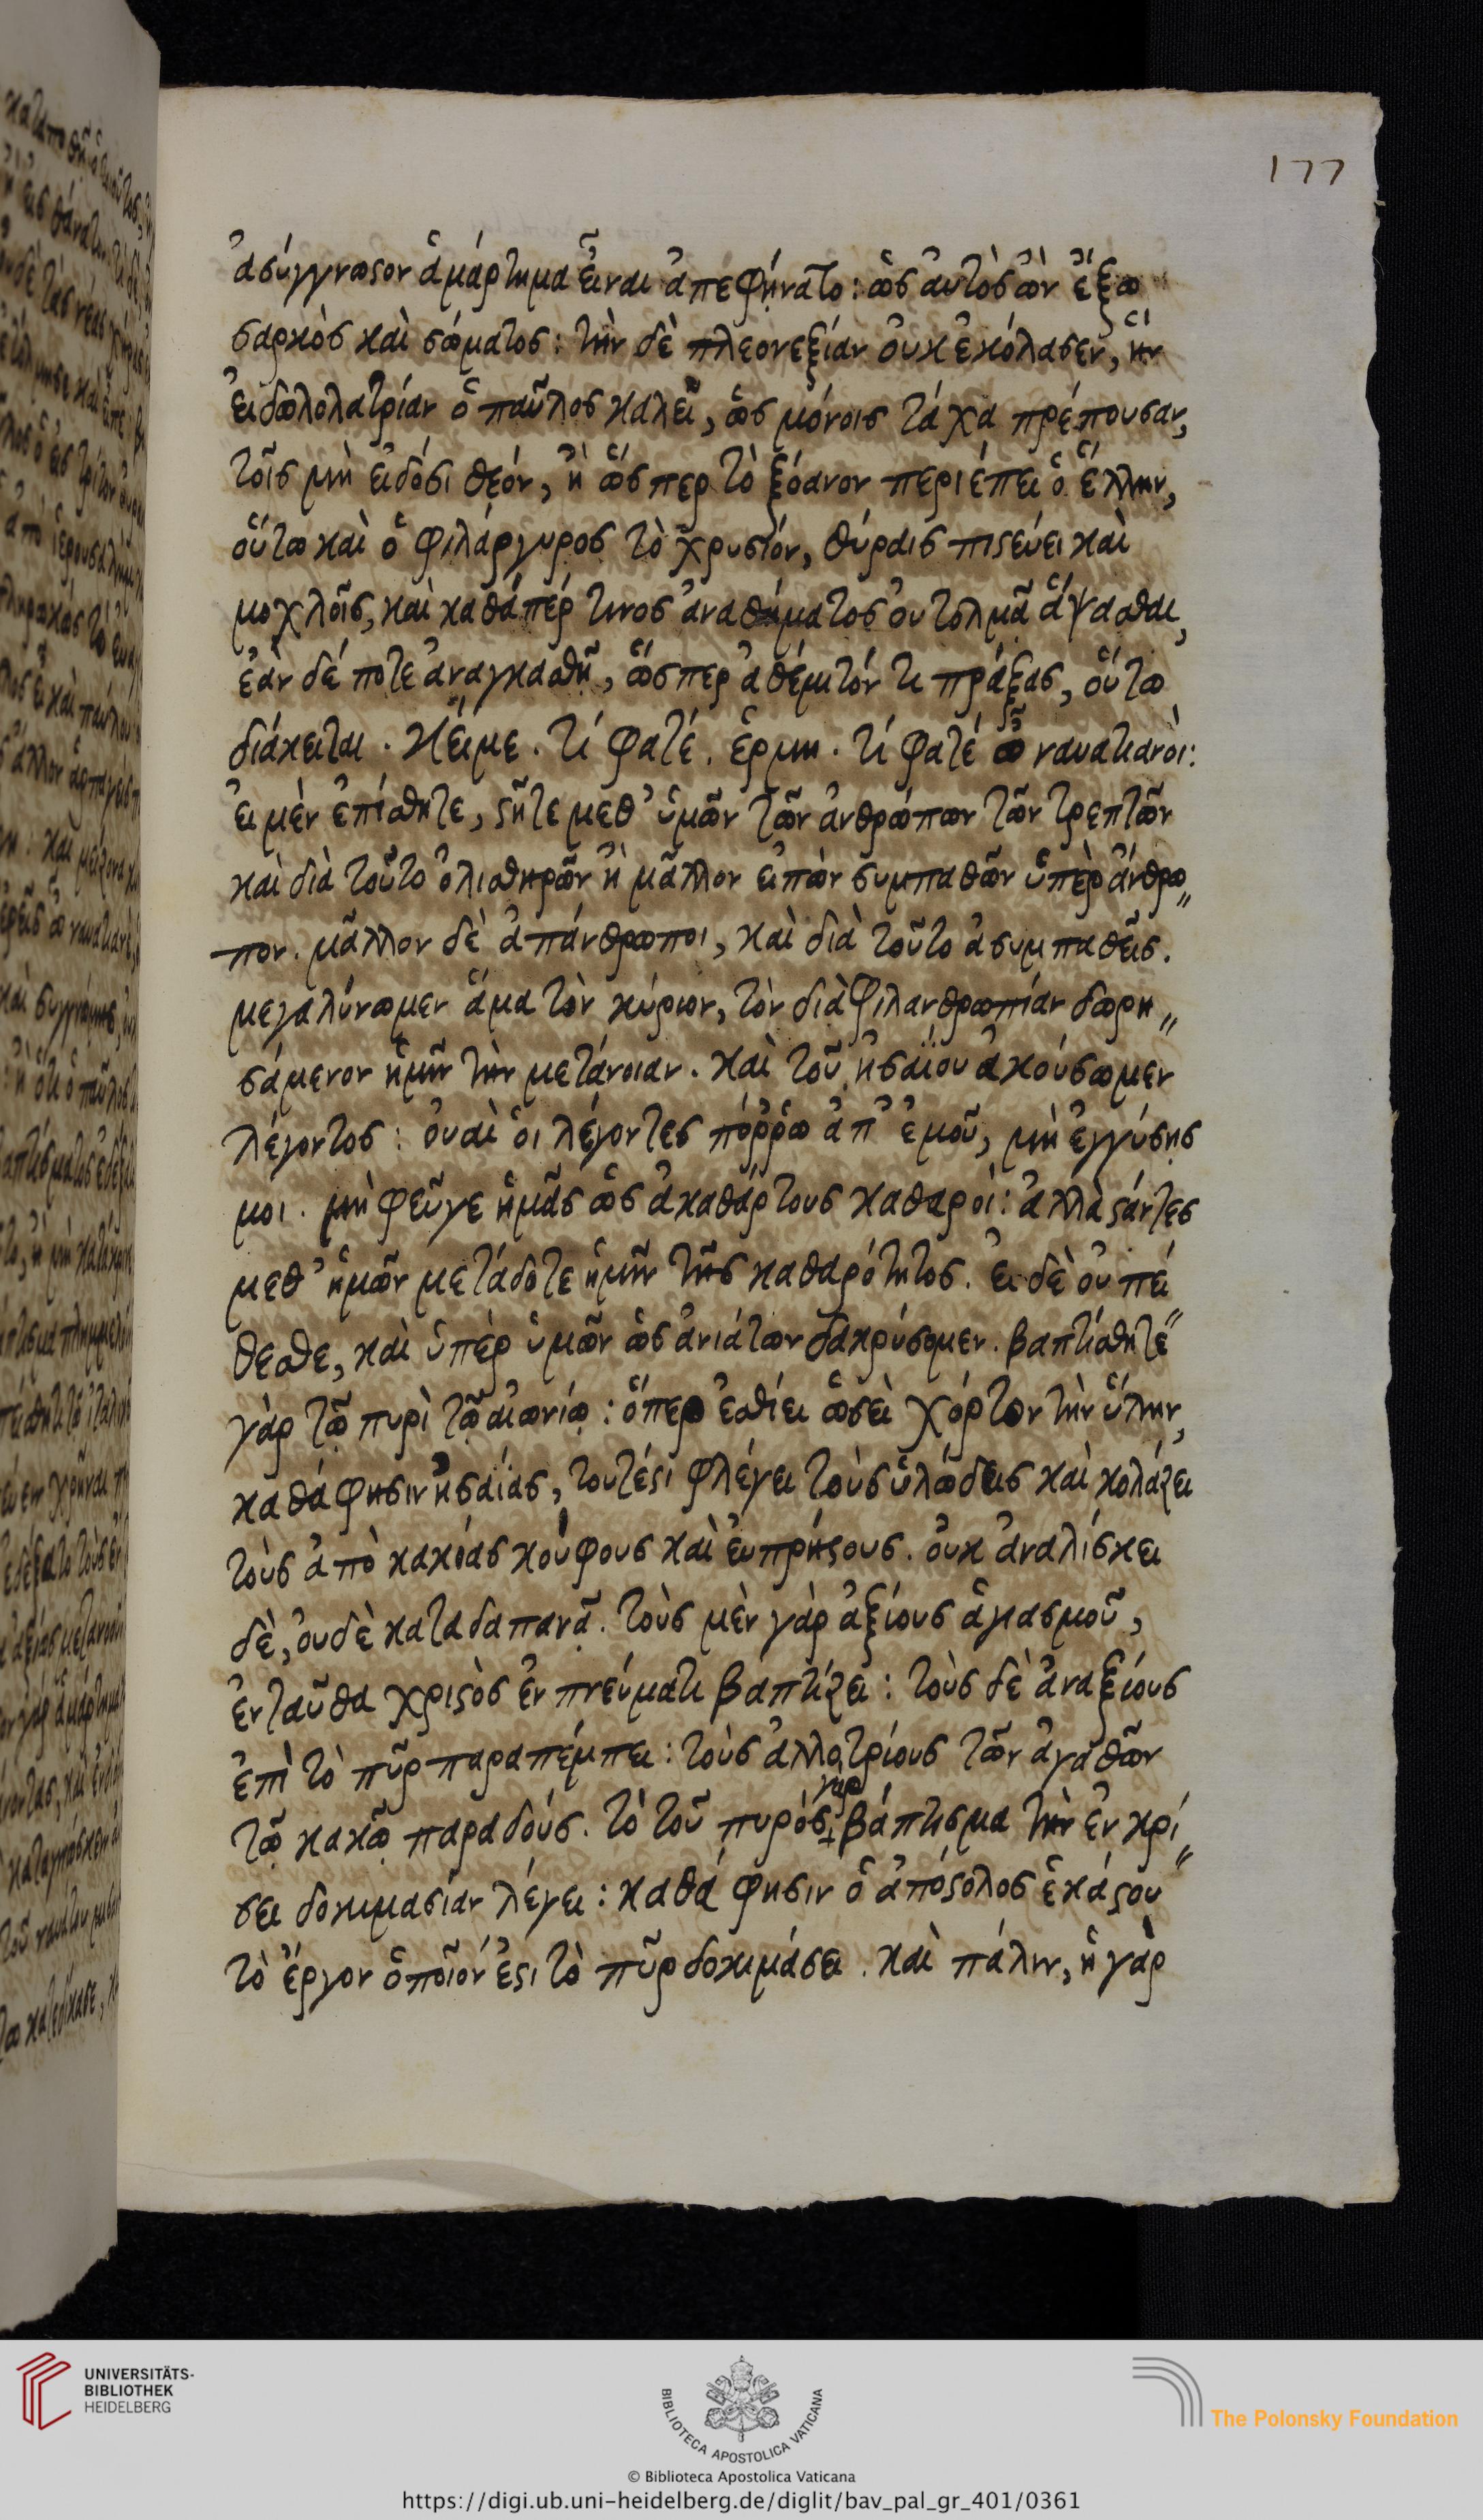 177
ἀσύγγνωστον ἁμάρτημα εἶναι ἀπεφήνατο: ὡς αὐτὸς ὢν ἔξω
σαρκὸς καὶ σώματος: τὴν δὲ πλεονεξίαν οὐκ ἐκόλασεν, ἣν
εἰδωλολατρίαν ὁ παῦλος καλεῖ, ὡς μόνοις τάχα πρέπουσαν,
τοῖς μὴ εἰδόσι θεόν, ἢ ὥσπερ τὸ ξόανον περιέπει ὁ ἕλλην,
οὕτω καὶ ὁ φιλάργυρος τὸ χρυσίον, θύραις πιστεύει καὶ
μοχλοῖς, καὶ καθάπέρ τινος ἀναθήματος οὐ τολμᾶ ἅψασθαι,
ἐὰν δέ ποτε ἀναγκασθῆ, ὥσπερ ἀθέμιτόν τι πράξας, οὕτω
διάκειται. κείμε. τί φατέ. ἑρμη. τί φατέ ὦ ναυατιανοὶ:
εἰ μὲν ἐπείσθητε, στῆτε μεθ' ὑμῶν τῶν ἀνθρώπων τῶν τρεπτῶν
καὶ διὰ τοῦτο ὀλισθηρῶν ἢ μᾶλλον εἰπὼν συμπαθῶν ὑπὲρ ἄνθρω„
πον. μᾶλλον δὲ ἀπάνθρωποι, καὶ διὰ τοῦτο ἀσυμπαθεῖς.
μεγαλύνωμεν ἅμα τὸν κύριον, τὸν διὰ φιλανθρωπίαν δωρη„
σάμενον ἡμῖν τὴν μετάνοιαν. καὶ τοῦ ἠσαΐου ἀκούσωμεν
λέγοντος: οὐαὶ οἱ λέγοντες πόῤῥω ἀπ' ἐμοῦ, μὴ ἐγγύσης
μοι. μὴ φεῦγε ἡμᾶς ὡς ἀκαθάρτους καθαροὶ: ἀλλὰ στάντες
μεθ' ἡμῶν μετάδοτε ἡμῖν τῆς καθαρότητος. εἰ δὲ οὐ πεί„
θεσθε, καὶ ὑπὲρ ὑμῶν ὡς ἀνιάτων δακρύσομεν. βαπτίσθητέ
γὰρ τῷ πυρὶ τῷ αἰωνίῳ: ὅπερ ἐσθίει ὡσεὶ χόρτον τὴν ὕλην,
καθά φησιν ἠσαΐας, τουτέστι φλέγει τοὺς ὑλώδεις καὶ κολάζει
τοὺς ἀπὸ κακίας κούφους καὶ εὐπρήστους. οὐκ ἀναλίσκει
δὲ, οὐδὲ καταδαπανᾷ. τοὺς μὲν γὰρ ἀξίους ἁγιασμοῦ,
ἐνταῦθα χριστὸς ἐν πνεύματι βαπτίζει: τοὺς δὲ ἀναξίους
ἐπὶ τὸ πῦρ παραπέμπει: τοὺς ἀλλοτρίους τῶν ἀγαθῶν
τῷ κακῷ παραδούς. τὸ τοῦ πυρός γὰρ βάπτισμα τὴν ἐν κρί„
σει δοκιμασίαν λέγει: καθά φησιν ὁ ἀπόστολος ἑκάστου
τὸ ἔργον ὁποῖόν ἐστι τὸ πῦρ δοκιμάσει. καὶ πάλιν, ἡ γὰρ
UNIVERSITÄTS-
BIBLIOTHEK
HEIDELBERG
BIBLIOTECA APOSTOLICA VATICANA
The Polonsky Foundation
© Biblioteca Apostolica Vaticana
https://digi.ub.uni-heidelberg.de/diglit/bav_pal_gr_401/0361